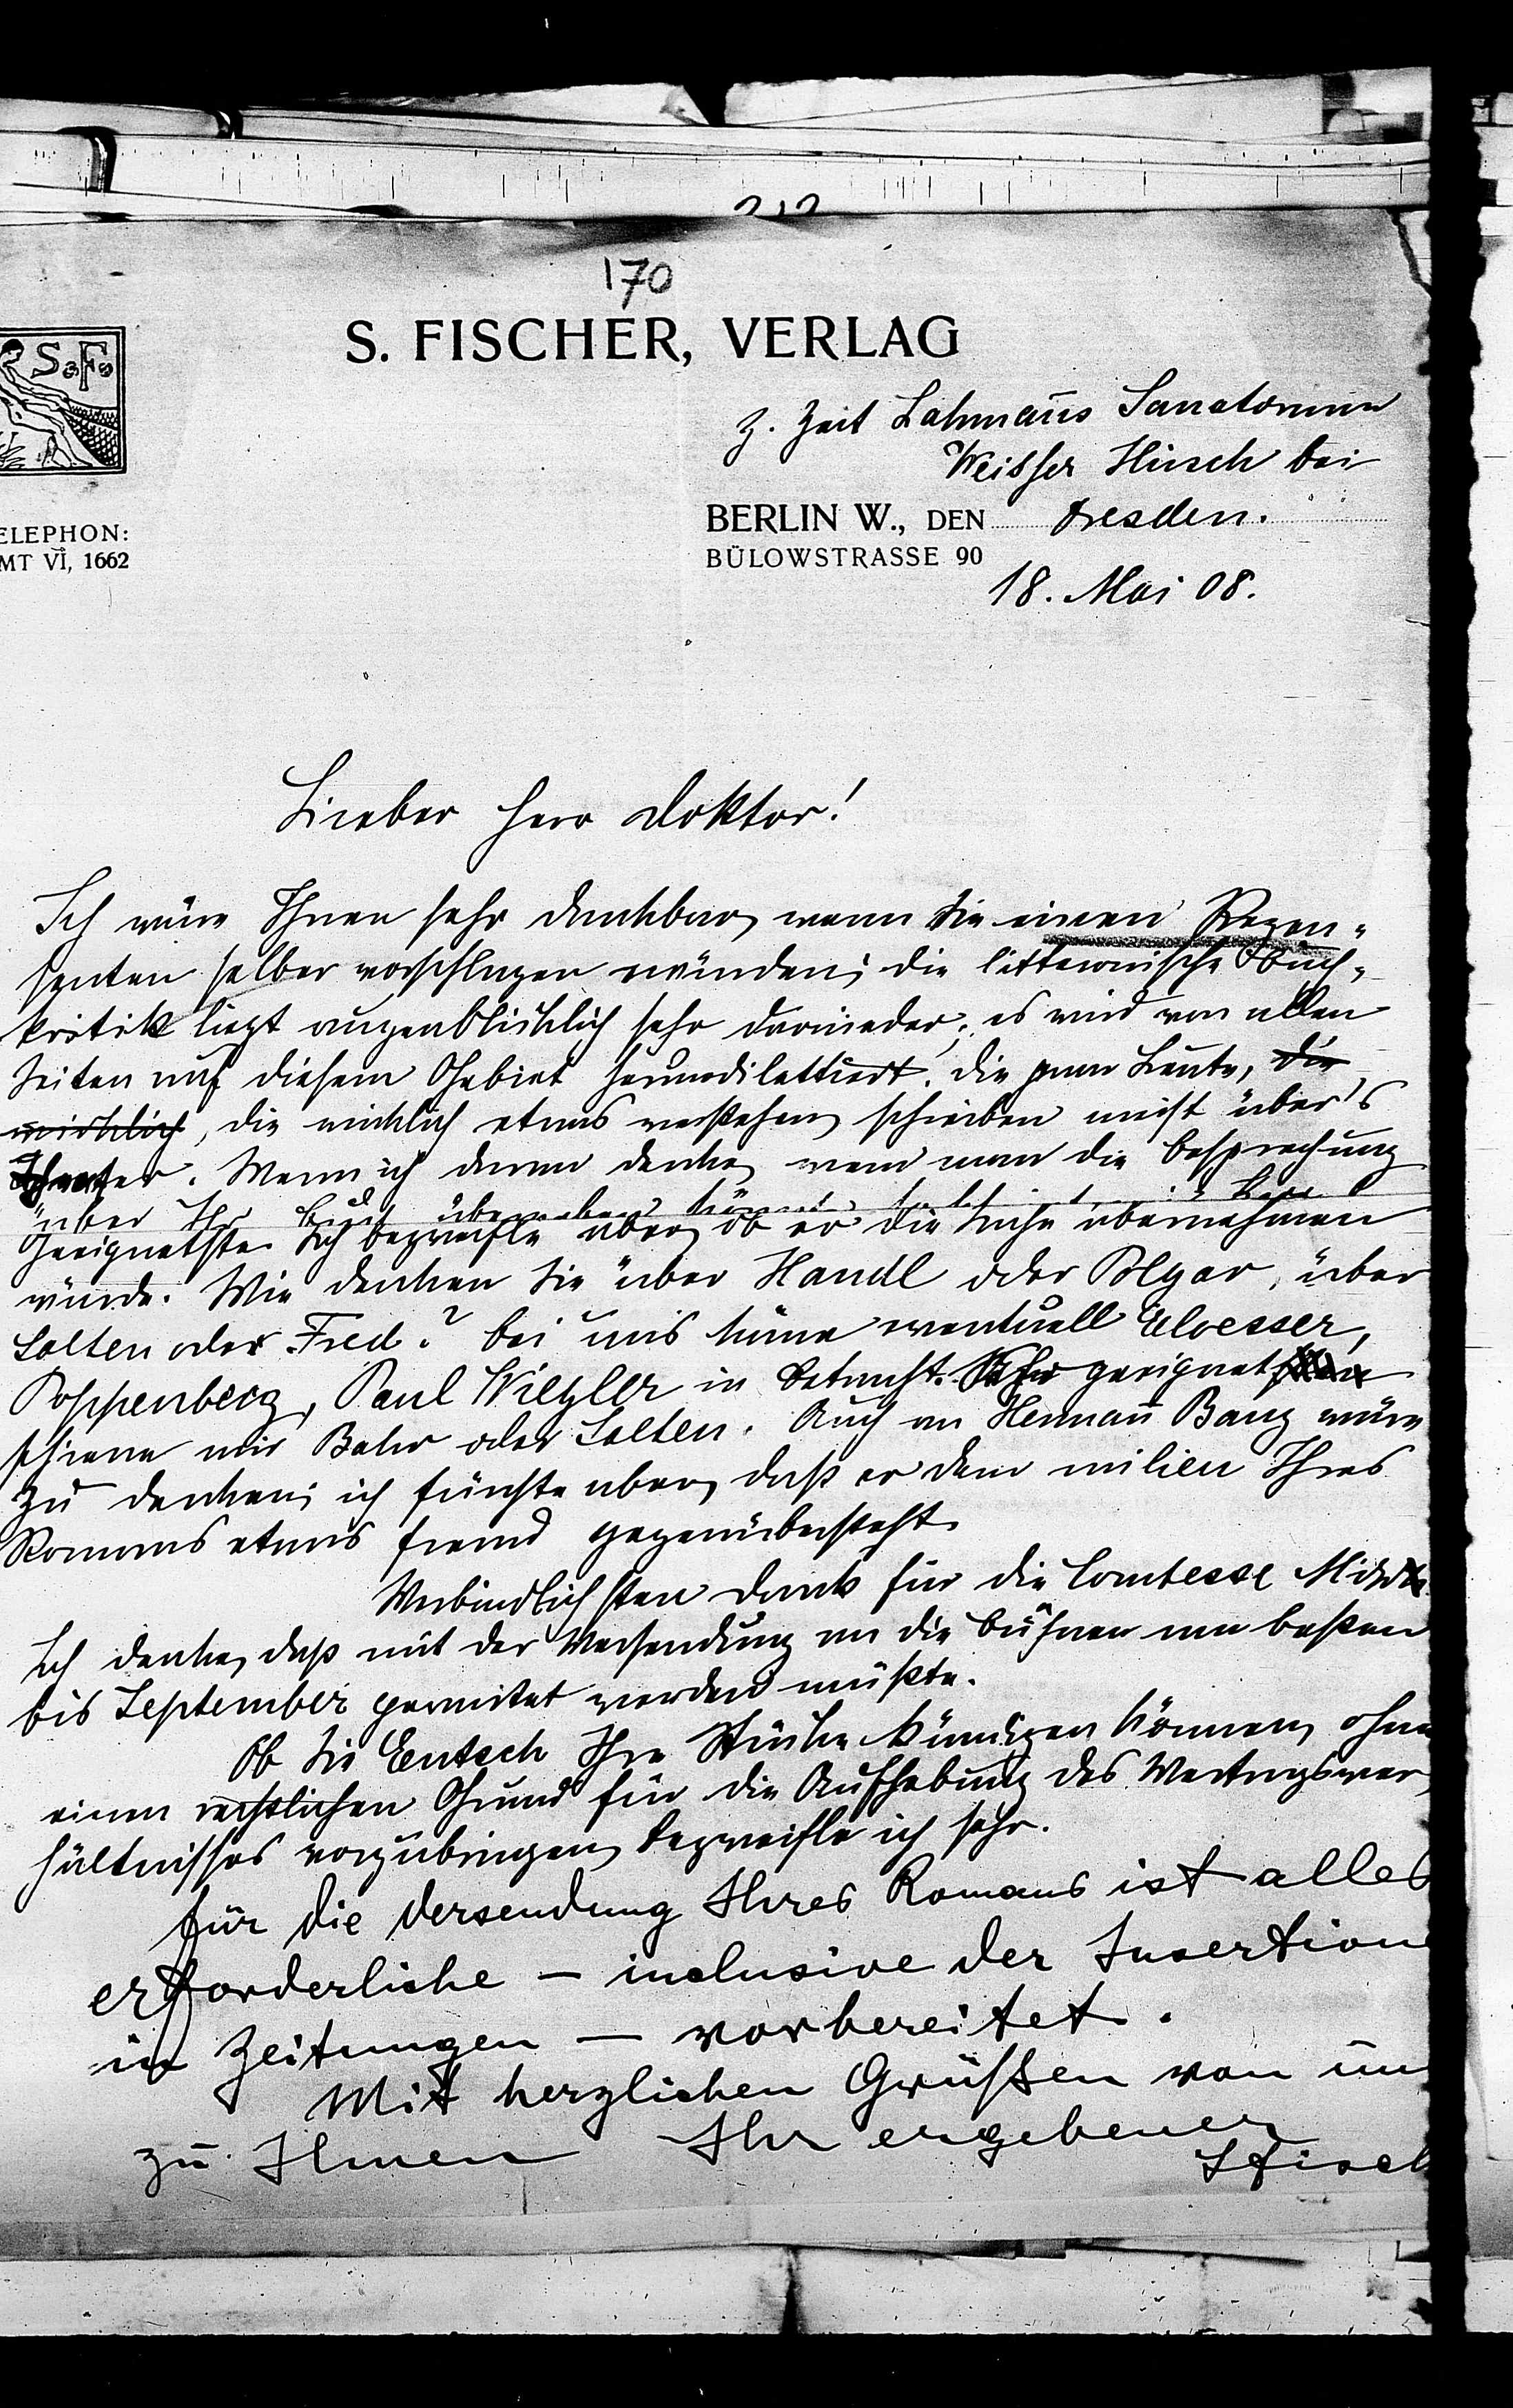 170
S. FISCHER, VERLAG
S. F.
z. Zeit Lahmanns Sanatorium
Weisser Hirsch bei
BERLIN W., DEN Dresden.
BÜLOWSTRASSE 90
ELEPHON:
MT VI, 1662
18. Mai 08.
Lieber Herr Doktor!
Ich wäre Ihnen sehr dankbar, wenn Sie einen Rezen-
senten selber vorschlagen würden; die litterarische Buch-
kritik liegt augenblicklich sehr darnieder; es wird von allen
Seiten auf diesem Gebiet herumdilettiert. Die paar Leute, die
wirklich, die wirklich etwas verstehen, schreiben meist über's
Theater. Wenn ich daran denke, wem man die Besprechung
über Ihr Buch übergeben könnte
Geeignetste. Ich bezweifle aber, ob er die Sache übernehmen
würde. Wie denken Sie über Handl oder Polgar, über
Salten oder Fred? Bei uns käme eventuell Eloesser,
Poppenberg, Paul Wiegler in Betracht. Sehr geeignet
schiene mir Bahr oder Salten. Auch an Hermann Bang wäre
zu denken; ich fürchte aber, daß er dem milieu Ihres
Romans etwas fremd gegenübersteht.
Verbindlichsten Dank für die Comtesse Mizi
Ich denke, daß mit der Versendung an die Bühnen am besten
bis September gewartet werden müßte.
Ob Sie Entsch Ihre Stücke kündigen können, ohne
einen rechtlichen Grund für die Aufhebung des Vertragsver-
hältnisses vorzubringen, bezweifle ich sehr.
für die Versendung Ihres Romans ist alles
erforderliche – inclusive der Insertion
in Zeitungen – vorbereitet.
Mit herzlichen Grüßen von un
zu Ihnen Ihr ergebener
SFisch